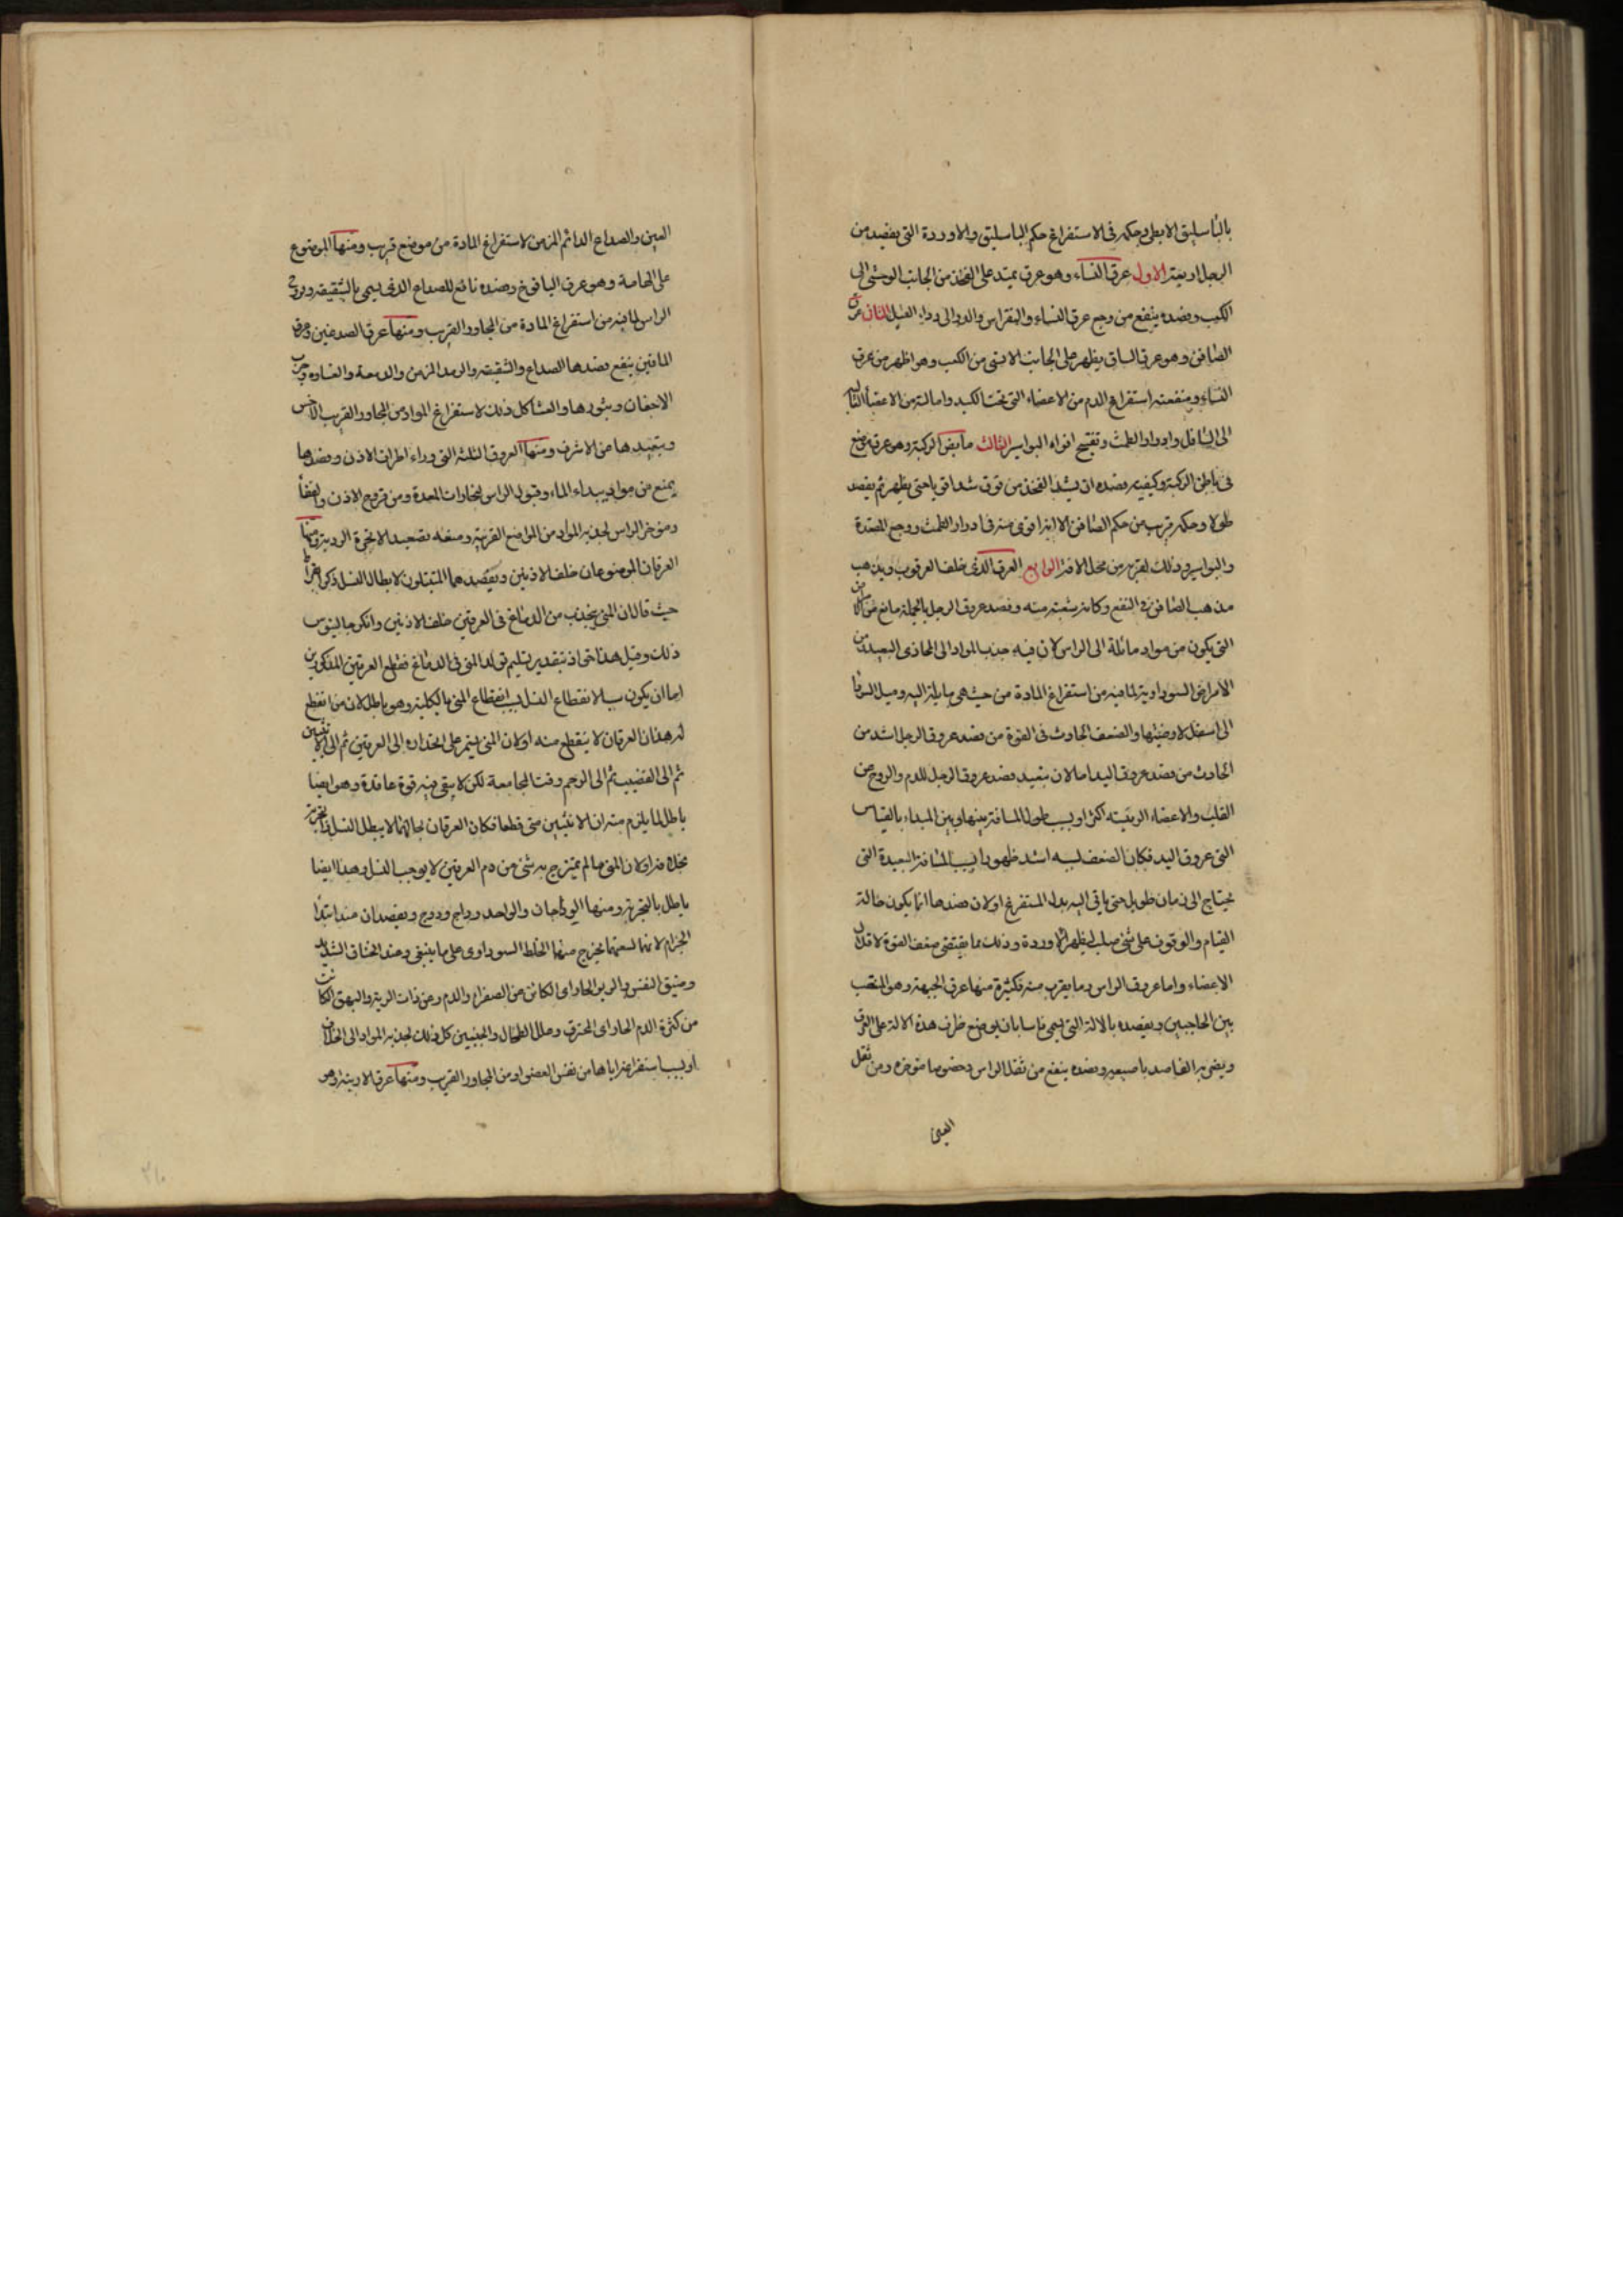 بالباسليق الابطى وحكمه فى الاستفراغ حكم الباسليق والاوردة التى يفصد من
الرجل اربعة الاول عرق النساء وهو عرق يمتد على الفخذ من الجانب الوحشى الى
الكعب وفصده ينفع من وجع عرق النساء والنقرس والدوالى وداء الفيل الثانى عرق
الصافن وهو عرق الساق يظهر على الجانب الانسى من الكعب وهو اظهر من عرق
النساء ومنفعته استفراغ الدم من الاعضاء التى تحت الكبد وامالته من الاعضاء العالية
الى السافل وادرار الطمث وتفتيح افواه البواسير الثالث مابض الركبة وهو عرق موضع
فى باطن الركبة وكيفية فصده ان يشد الفخذ من فوق شدا قويا حتى يظهر ثم يفصد
طولا وحكمه قريب من حكم الصافن الا انه اقوى منه فى ادرار الطمث ووجع المقعدة
والبواسير وذلك لقربه من محل الافة الرابع العرق الذى خلف العرقوب ويذهب
مذهب الصافن فى النفع وكانه شعبة منه وفصد عروق الرجل بالجملة مانع من الامراض
التى يكون من مواد مائلة الى الراس لان فيه جذب المواد الى المحاذى البعيد من
الامراض السوداوية لما فيه من استفراغ المادة من حيث هى مايلة اليه وميل السوداء
الى اسفل لارضيتها والضعف الحادث فى القوة من فصد عروق الرجل اشد من
الحادث من فصد عروق اليد اما لان تبعيد فصد عروق الرجل للدم والروح عن
القلب والاعضاء الرئيسة اكثر او بسبب طول المسافة بينها وبين المبداء بالقياس
الى عروق اليد فكان الضعف لسه اشد ظهورا بسبب المسافة البعيدة التى
يحتاج الى زمان طويل حتى ياتى اليه بدل المستفرغ اولان فصدها انما يكون حالة
القيام والوقوف على شئ صلب ليظهر الاوردة وذلك مما يقتضى ضعف القوة لاقلال
الاعضاء واما عروق الراس وما يقرب منه فكثيرة منها عرق الجبهة وهو المنتصب
بين الحاجبين ويفصد بالالة التى يسمى فاسا بان يوضع طرف هذه الالة على العرق
ويضربه الفاصد باصبعه وفصده ينفع من ثقل الراس وخصوصا مؤخره ومن ثقل
العين
العين والصداع الدائم المزمن لاستفراغ المادة من موضع قريب ومنها الموضوع
على الهامة وهو عرق اليافوخ وفصده نافع للصداع الذى يسمى بالشقيقة وقروح
الراس لما فيه من استفراغ المادة من المجاور القريب ومنها عرق الصدغين وعرق
الماقين ينفع فصدها الصداع والشقيقة والرمد المزمن والدمعة والغشاوة وجرب
الاجفان وبثورها والعشا كل ذلك لاستفراغ المواد من المجاور القريب الاخس
وتبعيدها عن الاشرف ومنها العروق الثلثة التى وراء اطراف الاذن وفصدها
يمنع من مبادى بداء الماء وقبول الراس لبخارات المعدة ومن قروح الاذن والقفا
ومؤخر الراس لجذبه المواد من المواضع القريبة ومنعه تصعيد الابخرة الردية ومنها
العرقان الموضوعان خلف الاذنين ويفصدهما المتبتلون لابطال النسل ذكره بقراط
حيث قال ان المنى يجذب من الدماغ فى العرقين خلف الاذنين وانكر جالينوس
ذلك وقيل هذا حق اذ بتقدير تسليم تولد المنى فى الدماغ فقطع العرقين المذكورين
اما ان يكون سببا لانقطاع النسل بسبب انقطاع المنى بالكلية وهو باطل لان من انقطع
له هذان العرقان لا ينقطع منه اولان المنى ليتمر على انحداره الى العرقين ثم الى الانثيين
ثم الى القضيب ثم الى الرحم وقت المجامعة لكن لا يبقى فيه قوة عاقدة وهو ايضا
باطل لما يلزم منه ان الانثيين متى قطعا فكان العرقان بحالهما لا يبطل النسل والتجربة
بخلافه اولان المنى ما لم يمتزج به شئ من دم العرقين لا يوجب النسل وهذا ايضا
باطل بالتجربة ومنها الوداجان والواحد وداج وودج ويفصدان عند ابتداء
الجذام لانهما لسعتهما يخرج منهما الخلط السوداوى على ما ينبغى وعند الخناق الشديد
وضيق النفس والربو الحادى الكائن من الصفراء والدم وعن ذات الرية والبهق الكائن
من كثرة الدم الحاد اى المحترق وعلل الطحال والجنبين كل ذلك لجذبه المواد الى الخلاف
او بسبب استفراغه اياها من نفس العضو او من المجاور القريب ومنها عرق الارنبة وهو